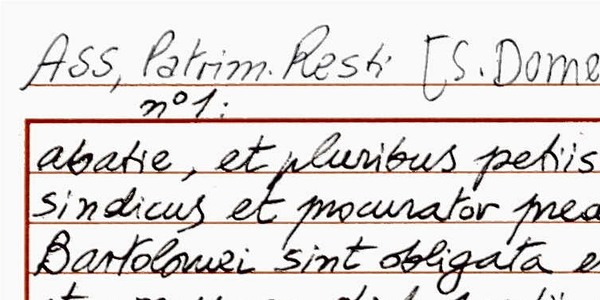 Ass, Patrim. Resti [S. Dome
n° 1:
abatie, et pluribus petiis
sindicus et procurator prea
Bartolomei sint obligata e